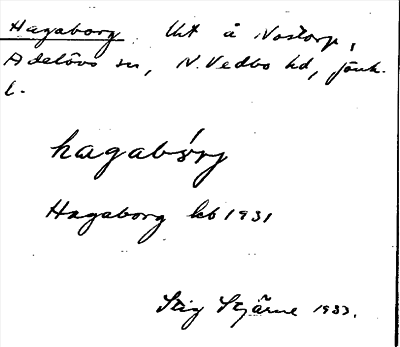 Hagaborg Ut å Nostorp,
Adelövs sn, N. Vedbo hd, Jönk.
l.
hagabórj
Hagaborg kb 1931
Stig Stjärne 1933.